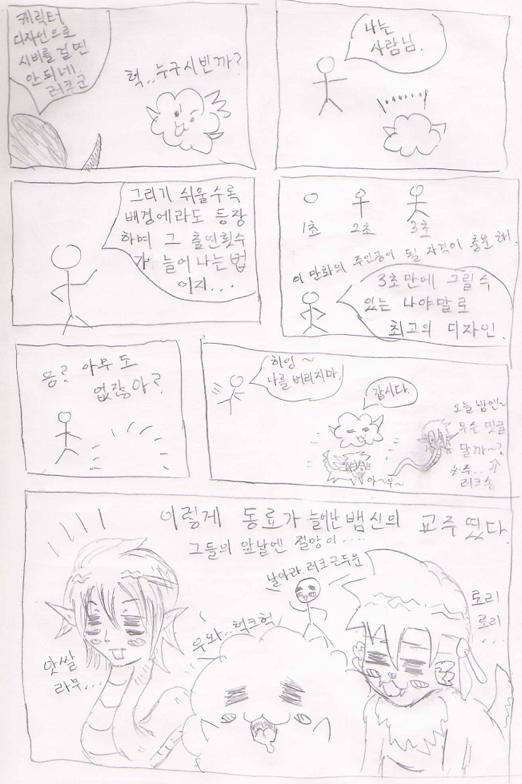 캐릭터
디자인으로
시비를 걸면
안 되네!
러주군
헉..누구시빈까?
나는
사람님.
그리기 쉬울수록
배경에라도 등장
하며 그 출연횟수
가 늘어나는 법
이지...
1초 2초 3초
이 만화의 주인공이 될 자격이 충분해.
3초만에 그릴 수
있는 나야말로
최고의 디자인.
응? 아무도
없잖아?
하잉~
나를 버리지마.
갑시다.
오늘 밤엔~
무슨 댓글
달까~?
이렇게 동료가 늘어난 뱀신의 교주였다.
그들의 앞날엔 절망이....
날아라. 러크근두운
우와..헉크헉
맛쌀
라무...
토리
로리
...